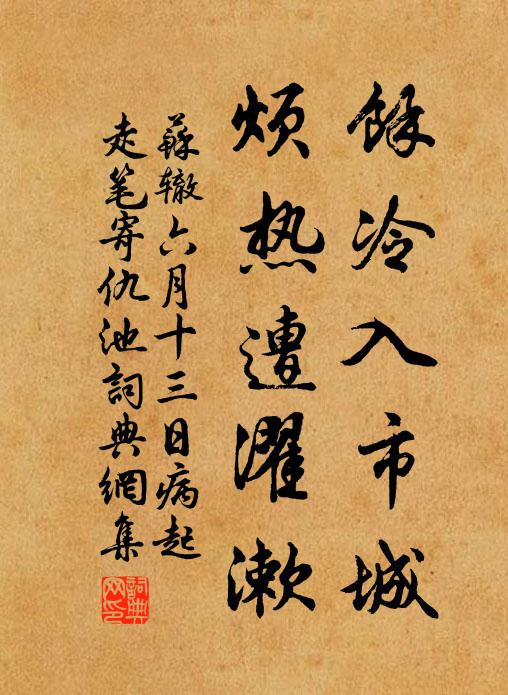 餘冷入市城
烦热遭濯漱
蘇辙六月十三日病起
走笔寄仇池詞典網集
詞典网印